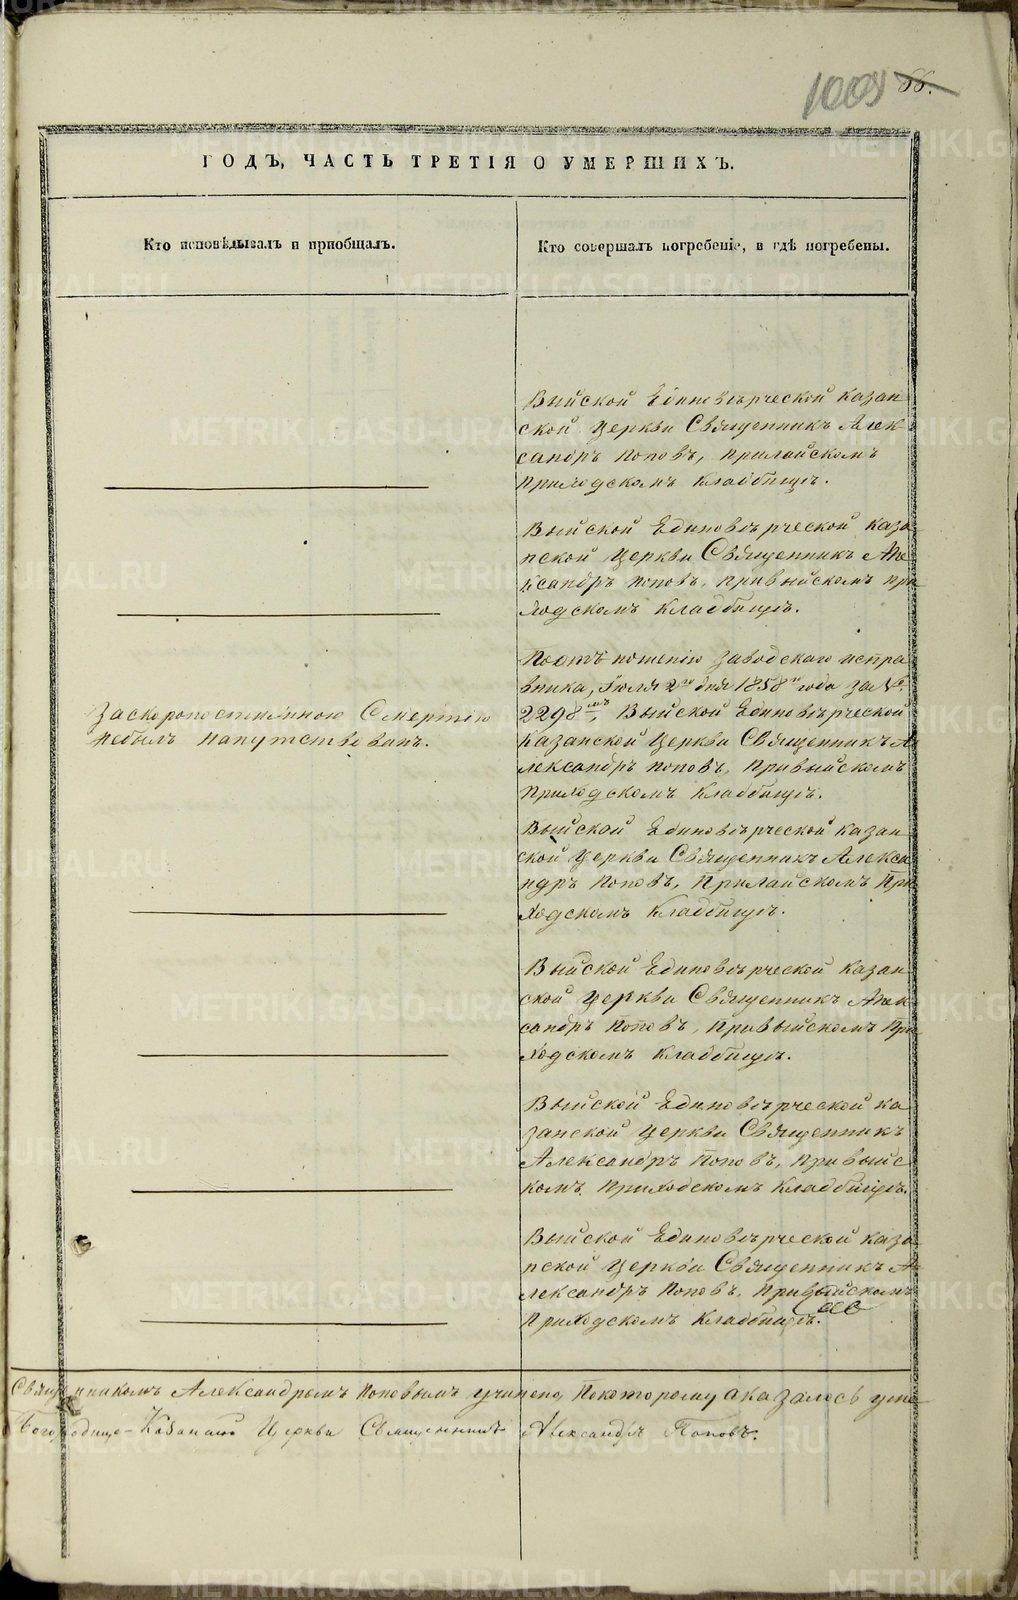 1009 66.
ГОДЪ, ЧАСТЬ ТРЕТІЯ О УМЕРШИХЪ.
Кто исповѣдывалъ и пріобщалъ.
Кто совершалъ погребеніе, и гдѣ погребены.
Выйской Единовѣрческой Казан
ской Церкви Священникъ Алек
сандръ Поповъ, прилайскомъ
приходскомъ кладбищѣ.
Выйской Единовѣрческой Каза
нской Церкви Священникъ Але
ксандръ Поповъ, привыйскомъ при
ходскомъ кладбищѣ.
Заскоропостижною Смертію
небылъ напутствованъ.
Поотъ ношенію заводскаго испра
вника, Іюля 2го дня 1858го года за №
2298мъ, Выйской Единовѣрческой
Казанской Церкви Священникъ А
лександръ Поповъ, привыйскомъ
приходскомъ кладбищѣ.
Выйской Единовѣрческой Казан
ской Церкви Священникъ Алекса
ндръ Поповъ, прилайскомъ при
ходскомъ кладбищѣ.
Выйской Единовѣрческой Казан
ской Церкви Священникъ Алек
сандръ Поповъ, привыйскомъ при
ходскомъ кладбищѣ.
Выйской Единовѣрческой Ка
занской Церкви Священникъ
Александръ Поповъ, привыйс
комъ приходскомъ кладбищѣ.
Выйской Единовѣрческой Каза
нской Церкви Священникъ А
лександръ Поповъ, привыйскомъ
приходскомъ кладбищѣ.
Священникомъ Александромъ Поповымъ учинена, Покоторому аказалось уме
Богородице-Казанской Церкви Священникъ Александръ Поповъ.
METRIKI.GASO-URAL.RU